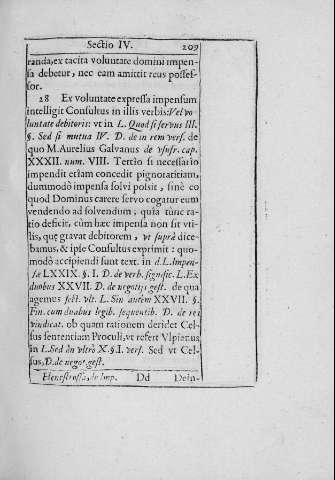 Sectio IV. 209
randa, ex tacita voluntate domini impen-
sa debetur, nec eam amittit reus posses-
sor.
28 Ex voluntate expressa impensum
intelligit Consultus in illis verbis: Vel vo-
luntate debitoris: vt in L. Quod si servus III.
§. Sed si mutua IV. D. de in rem vers. de
quo M. Aurelius Galvanus de vsufr. cap.
XXXII. num. VIII. Tertio si necessario
impendit etiam concedit pignoratitiam,
dummodò impensa solvi possit, sinè eo
quod Dominus carere servo cogatur eum
vendendo ad solvendum, quia tunc ra-
tio deficit, cùm hæc impensa non sit vti-
lis, quę gravat debitorem, vt suprà dice-
bamus, & ipse Consultus exprimit: quo-
modò accipiendi sunt text. in d. L. Impen-
sæ LXXIX. §. I. D. de verb. signific. L. Ex
duobus XXVII. D. de negotijs gest. de qua
agemus sect. vlt. L. Sin autem XXVII. §.
Fin. cum duabus legib. sequentib. D. de rei
vindicat. ob quam rationem deridet Cel-
sus sententiam Proculi, vt refert Vlpianus
in L. Sed an vltrò X. §. I. vers. Sed vt Cel-
sus, D. de negot. gest.
Henestrossa, de Imp. Dd Dein-